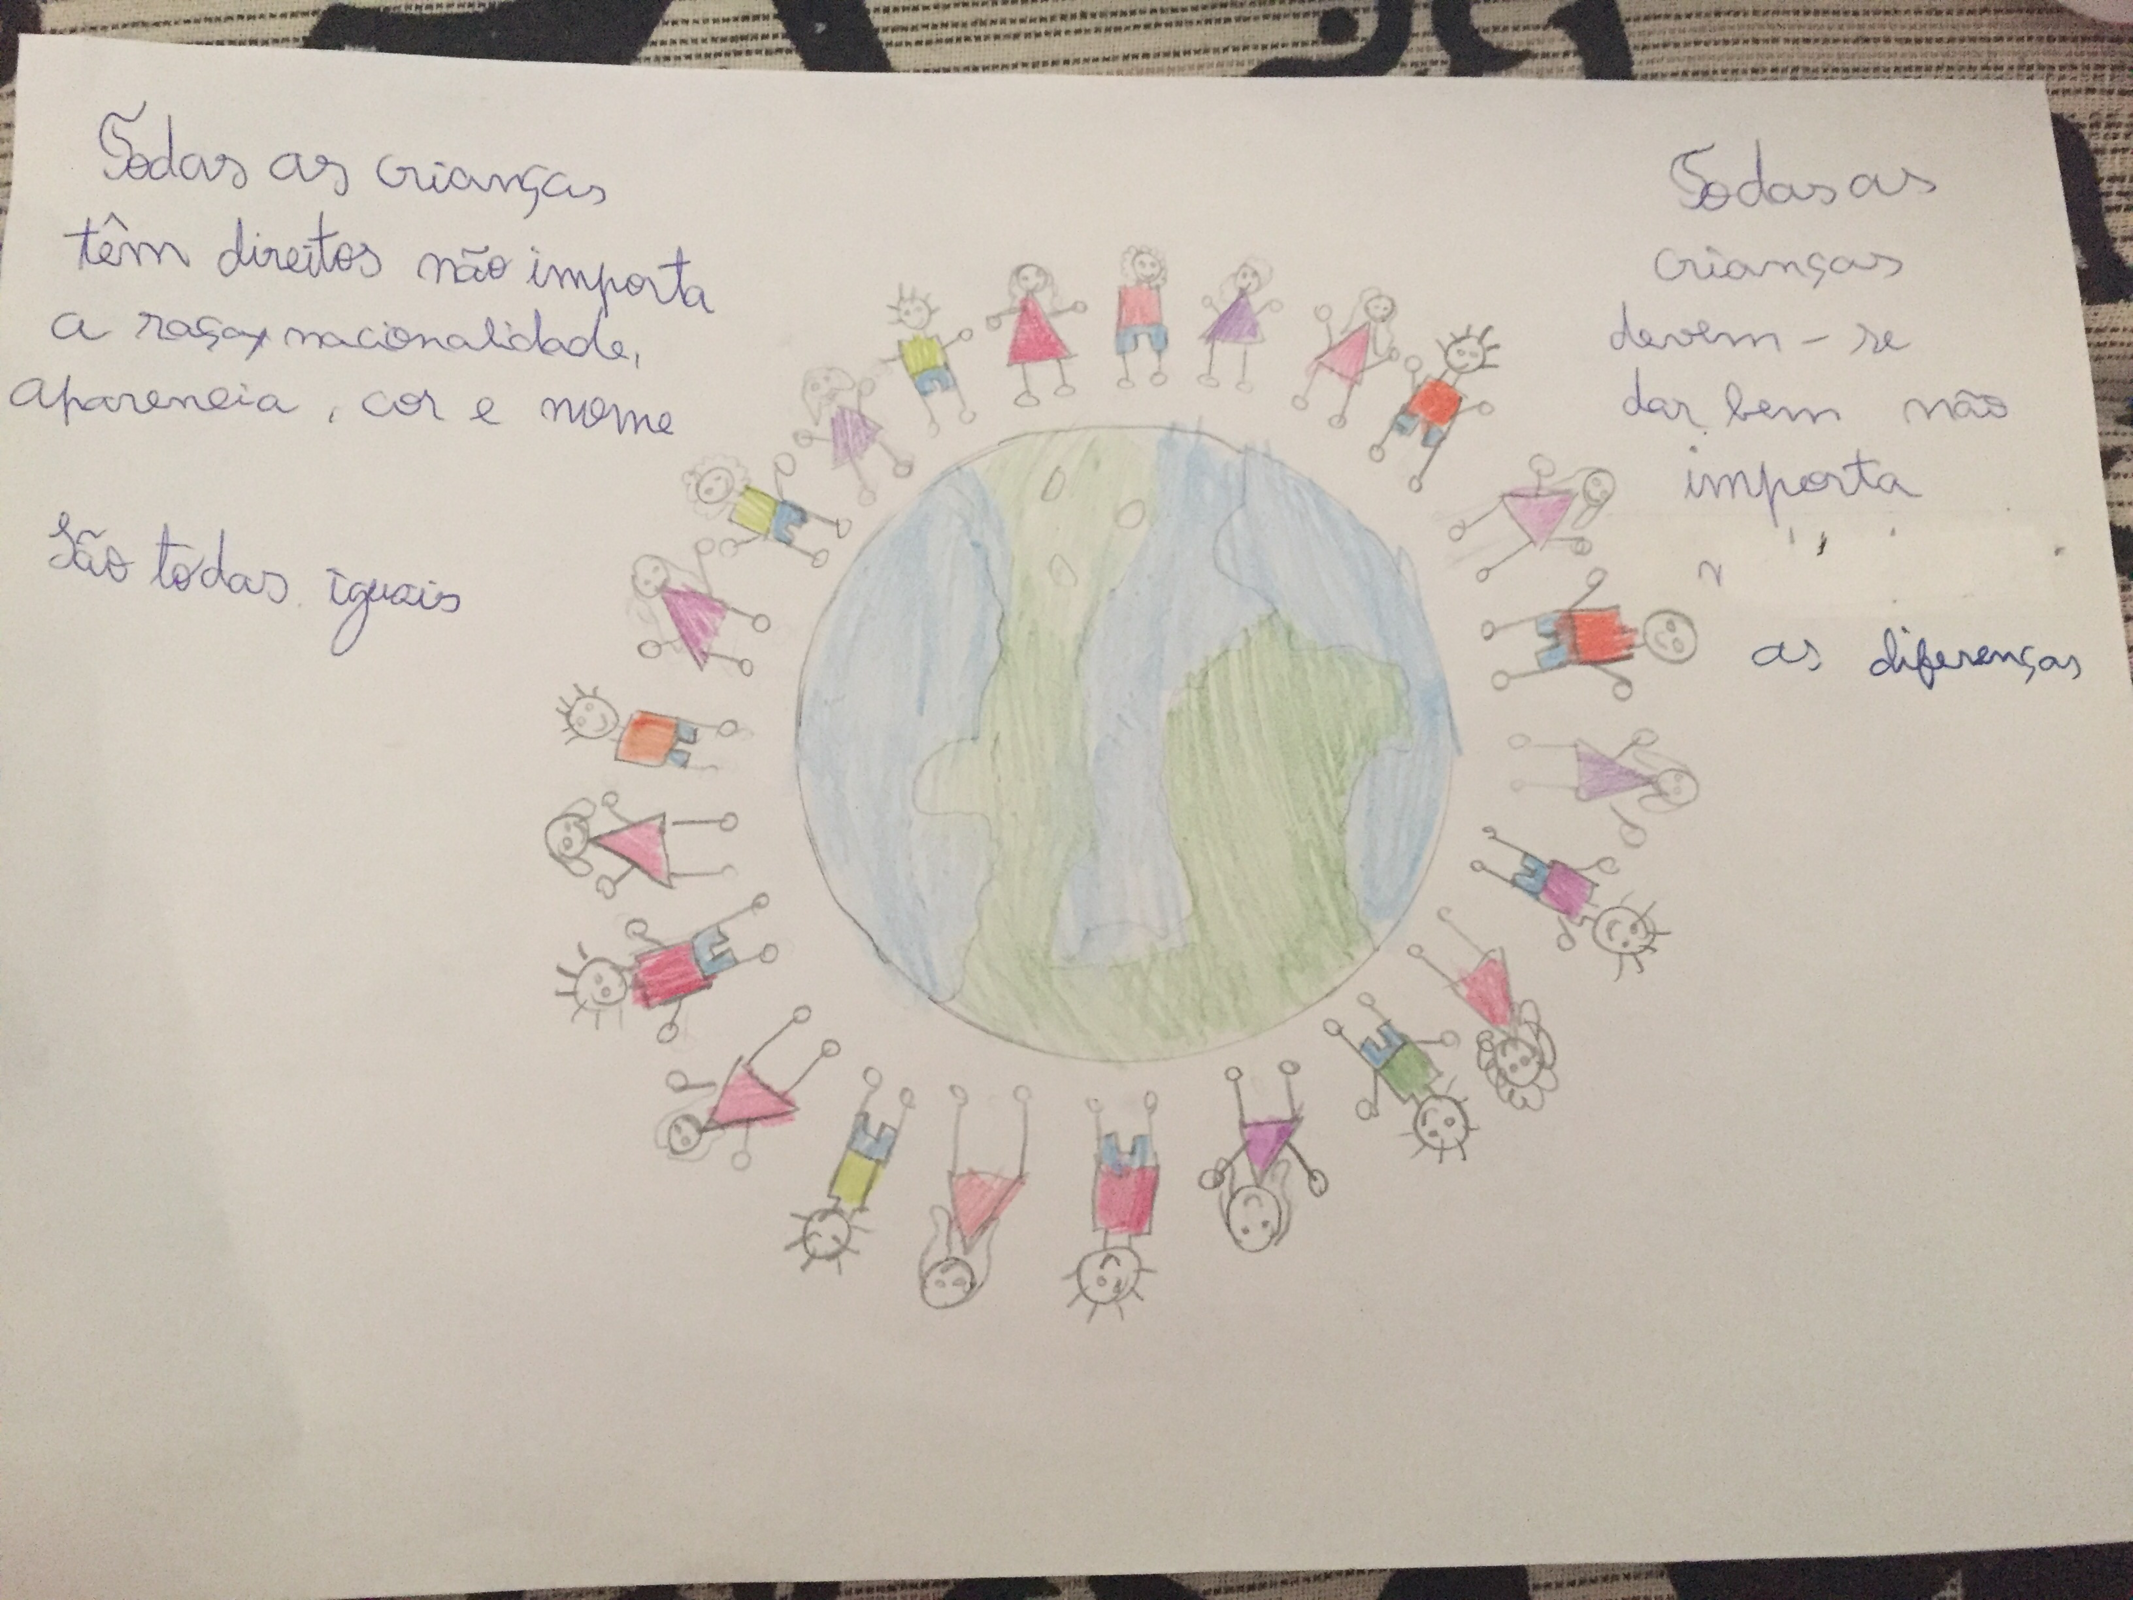 Todas as crianças
têm direitos não importa
a raça, nacionalidade,
aparencia, cor e nome
São todas iguais
Todas as
crianças
devem-se
dar bem não
importa
as diferenças